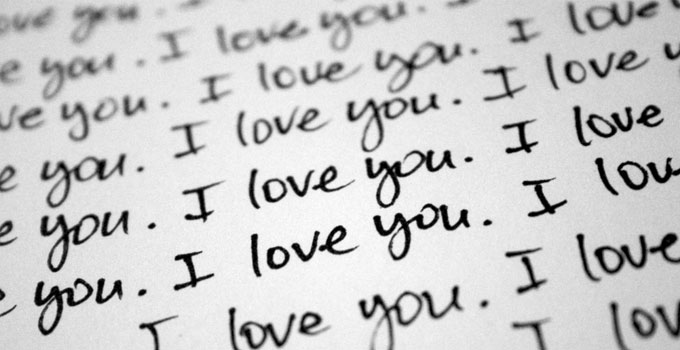 ove you.
e you. I love you.
ve you. I love you. I love
e you. I love you. I love y
e you. I love you. I love
e you. I love you. I lov
I love you. I love
I lov